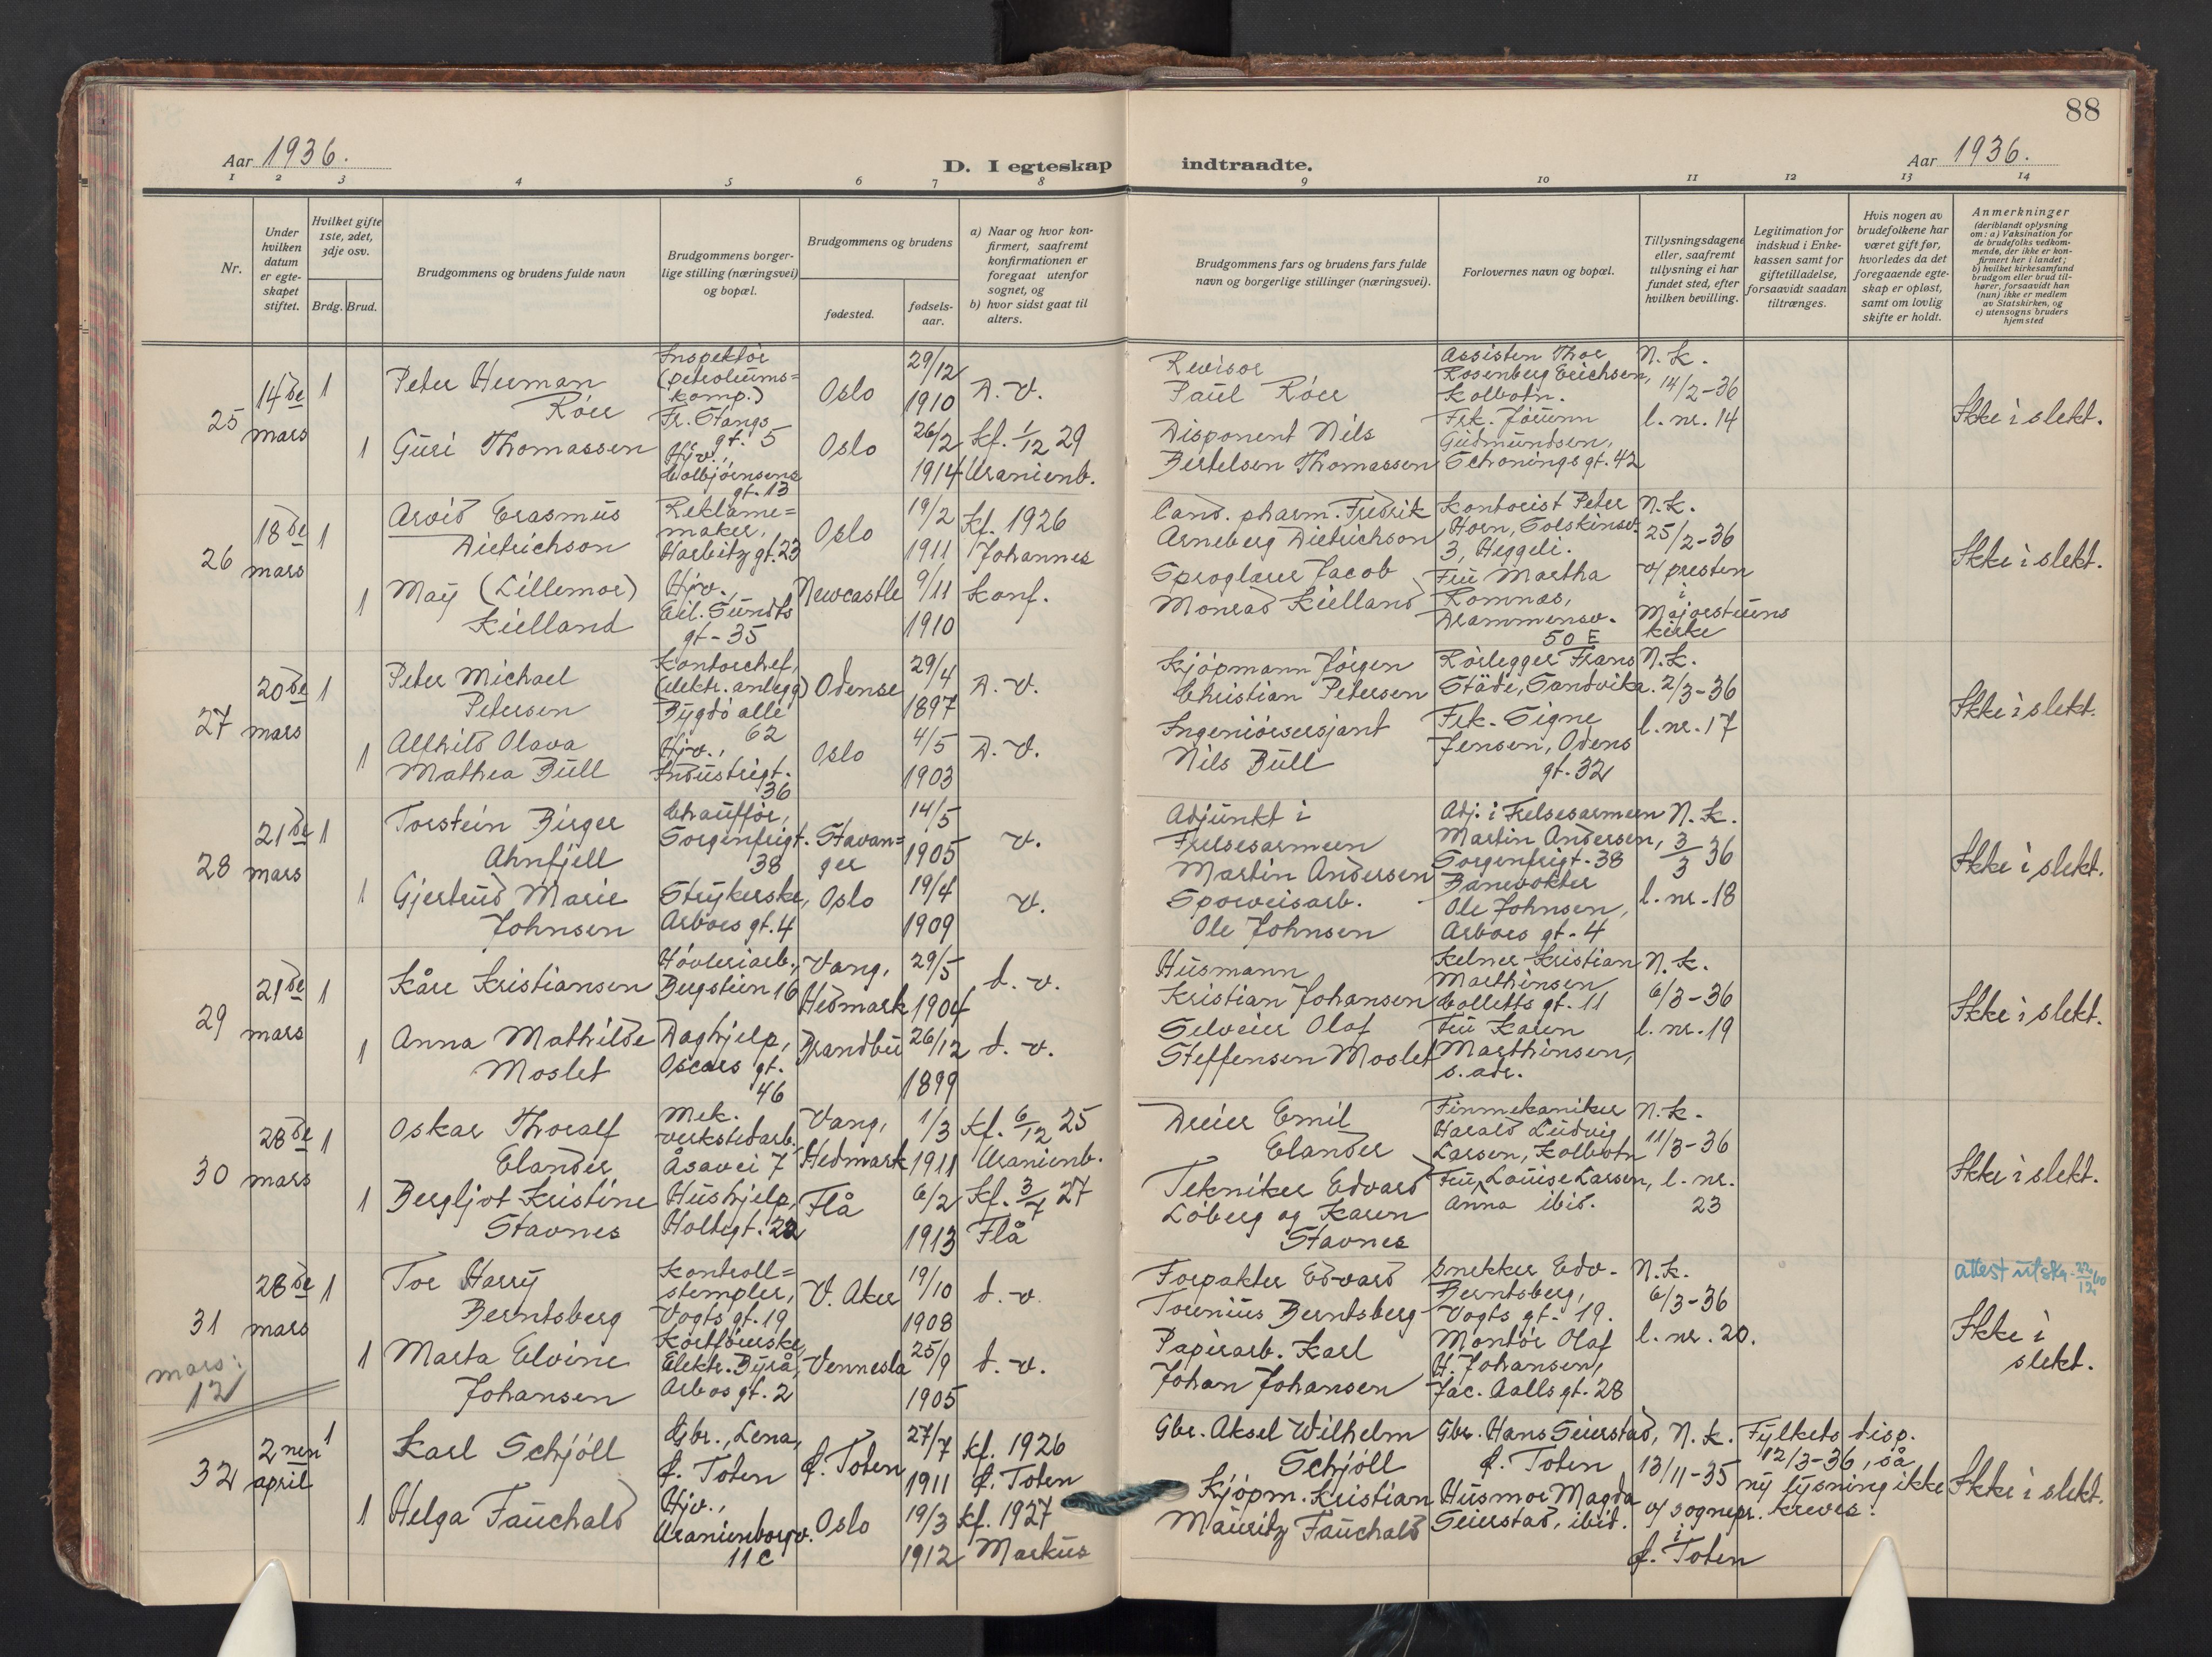 88
Aar 1936.
D. I egteskap indtraadte.
Aar 1936.
1 2 3 4 5 6 7 8 9 10 11 12 13 14
Nr.
Under hvilken datum er egteskapet stiftet.
Hvilket gifte 1ste, 2det, 3dje osv.
Brdg. Brud.
Brudgommens og brudens fulde navn
Brudgommens borgerlige stilling (næringsvei) og bopæl.
Brudgommens og brudens
fødested.
fødselsaar.
a) Naar og hvor konfirmert, saafremt konfirmationen er foregaat utenfor sognet, og
b) hvor sidst gaat til alters.
Brudgommens fars og brudens fars fulde navn og borgerlige stillinger (næringsvei).
Forlovernes navn og bopæl.
Tillysningsdagene eller, saafremt tillysning ei har fundet sted, efter hvilken bevilling.
Legitimation for indskud i Enkekassen samt for giftetilladelse, forsaavidt saadan tiltrænges.
Hvis nogen av brudefolkene har været gift før, hvorledes da det foregaaende egteskap er opløst, samt om lovlig skifte er holdt.
Anmerkninger
(deriblandt oplysning om: a) Vaksination for de brudefolks vedkommende, der ikke er konfirmert her i landet; b) hvilket kirkesamfund brudgom eller brud tilhører, forsaavidt han (hun) ikke er medlem av Statskirken, og c) utensogns bruders hjemsted
25
14de mars
1
Peter Herman Röer
Inspektör (petroleums=komp.) Fr. Stangs gt. 5
Oslo
29/12 1910
D. V.
Revisor Paul Röer
Assisten Thor Rosenberg Erichsen, Kolbotn.
N. K. 14/2-36 l. nr. 14
Ikke i slekt.
1
Guri Thomassen
Hjv., Colbjörnsens gt. 13
Oslo
26/2 1914
Kf. 1/12 29 Uranienb.
Disponent Nils Bertelsen Thomassen
Frk. Jörunn Gudmundsen, Schönings gt. 42
26
18de mars
1
Arvid Erasmus Dietrichson
Reklame=maker, Harbitz gt. 23
Oslo
19/2 1911
Kf. 1926 Johannes
Cand. pharm. Fredrik Arneberg Dietrichson
Kontorist Peter Horn, Sorkinsv. 3, Heggeli.
N. K. 25/2-36 v/ presten i Majorstuens kirke
Ikke i slekt.
1
May (Lillemor) Kielland
Hjv., Eil. Sundts gt-35
Newcastle
9/11 1910
Konf.
Sproglærer Jacob Monrad Kielland
Fru Martha Romnæs, Drammensv. 50 E
27
20de mars
1
Peter Michael Petersen
Kontorchef, (elektr. anlegg) Bygdö alle 62
Odense
29/4 1897
D. V.
Kjöpmann Jörgen Christian Petersen
Rörlegger Frans Städe, Sandvika.
N. K. 2/3-36 l. nr. 17
Ikke i slekt.
1
Alfhild Olava Mathea Bull
Hjv., Industrigt. 36
Oslo
4/5 1903
D. V.
Ingeniörsersjant Nils Bull
Frk. Signe Jensen, Odens gt. 32
28
21de mars
1
Torstein Birger Ahnfjell
Chauffør, Sorgenfrigt. 38
Stavan=ger
14/5 1905
v.
Adjunkt i Frelsesarmeen Martin Andersen
Adj. i Frelsesarmeen Martin Andersen, Sorgenfrigt. 38
N. K. 3/3 36 l. nr. 18
Ikke i slekt.
1
Gjertrud Marie Johnsen
Strykerske, Arbos gt. 4
Oslo
19/4 1909
v.
Sporveisarb. Ole Johnsen
Banevokter Ole Johnsen, Arbos gt. 4
29
21de mars
1
Kåre Kristiansen
Høvleriarb., Bergstien 16
Vang, Hedmark
29/5 1904
d. v.
Husmann Kristian Johansen
Kelner Kristian Marthinsen Colletts gt. 11
N. K. 6/3-36 l. nr. 19
Ikke i slekt.
1
Anna Mathilde Moslet
Daghjelp, Oscars gt. 46
Brandbu
26/12 1899
d. v.
Selveier Olaf Steffensen Moslet
Fru Karen Marthinsen, s. adr.
30
28de mars
1
Oskar Thoralf Elander
Mek. verkstedarb. Åsavei 7
Vang, Hedmark
1/3 1911
Kf. 6/12 25 Uranienb.
Dreier Emil Elander
Finmekaniker Harald Ludvig Larsen, Kolbotn
N. K. 11/3-36 l. nr. 23
Ikke i slekt.
1
Bergljot Kristine Stavnes
Hushjelp, Holtegt. 22
Flå
6/2 1913
Kf. 3/7 27 Flå
Tekniker Edvard Löberg og Karen Stavnes
Fru Louise Larsen, Anna ibid.
31
28de mars
1
Tor Harry Berntsberg
Kontroll=stempler, Vogts gt. 19
V. Aker
19/10 1908
d. v.
Forpakter Edvard Torenius Berntsberg
Snekker Edv. Berntsberg, Vogts gt. 19.
N. K. 6/3-36 l. nr. 20.
attest utskr. 22/12 60
Ikke i slekt.
1
Marta Elvine Johansen
Kortförerske, Elektr. Byrå, Arbos gt. 2
Vennesla
25/9 1905
d. v.
Papirarb. Karl Johan Johansen
Montör Olaf H. Johansen, Jac. Aalls gt. 28
mars: 12
32
2nen april
1
Karl Schjöll
Gbr., Lena, Ø. Toten
Ø. Toten
27/7 1911
Kf. 1926 Ø. Toten
Gbr. Aksel Wilhelm Schjöll
Gbr. Hans Seierstad, Ø. Toten
N. K. 13/11-35 v/ sognepr. i Ø. Toten
Fylkets disp. 12/3-36, så ny lysning ikke kreves.
Ikke i slekt.
1
Helga Fauchald
Hjv., Uranienborgv. 11 c
Oslo
19/3 1912
Kf. 1927 Markus
Kjöpm. Kristian Mauritz Fauchald
Husmor Magda Seierstad, ibid.